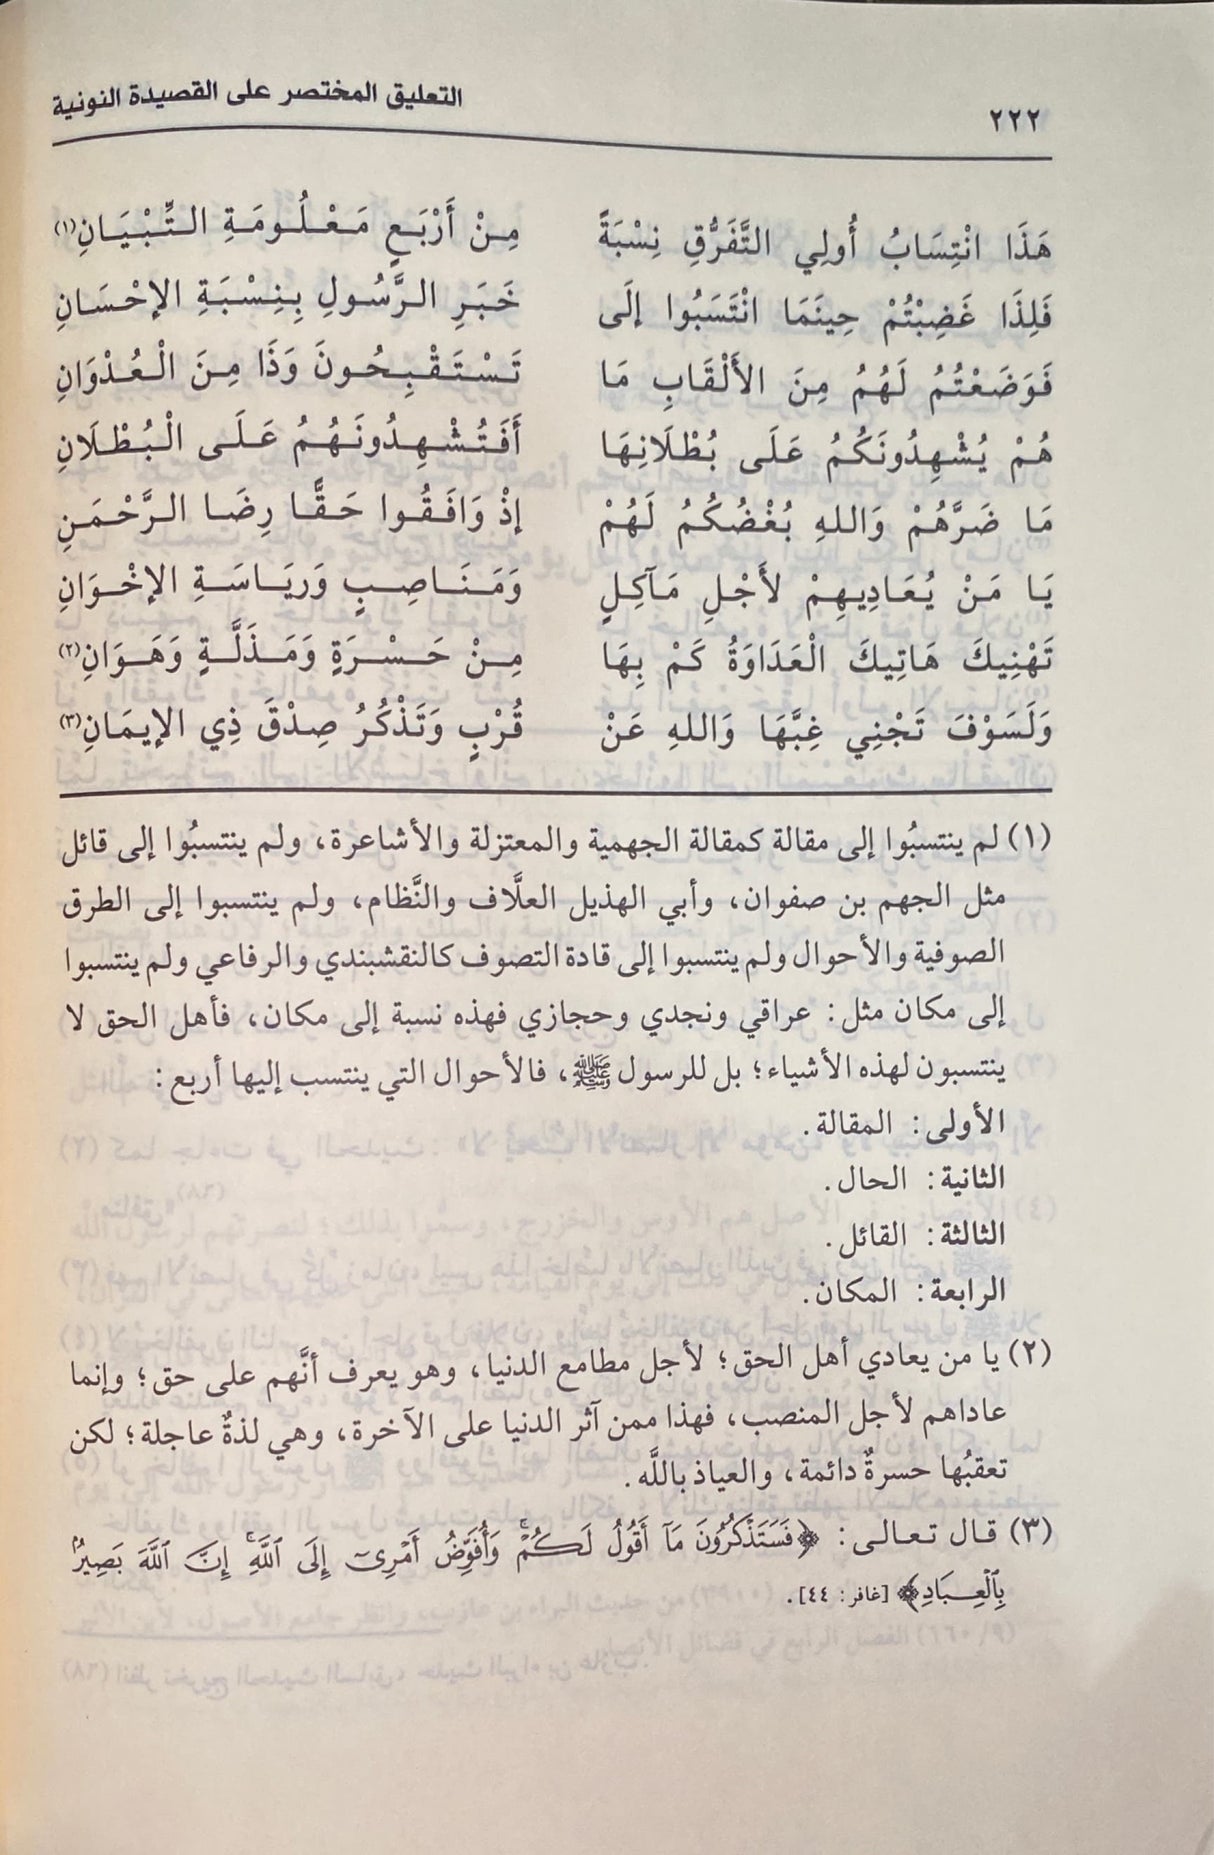 ٢٢٢
التعليق المختصر على القصيدة النونية
هَذَا انْتِسَابُ أُولِي التَّفَرُّقِ نِسْبَةً مِنْ أَرْبَعٍ مَعْلُومَةِ التِّبْيَانِ(١)
فَلِذَا غَضِبْتُمْ حِينَمَا انْتَسَبُوا إلَى خَبَرِ الرَّسُولِ بِنِسْبَةِ الإحْسَانِ
فَوَضَعْتُمُ لَهُمُ مِنَ الأَلْقَابِ مَا تَسْتَقْبِحُونَ وَذَا مِنَ الْعُدْوَانِ
هُمْ يُشْهِدُونَكُمُ عَلَى بُطْلَانِهَا أَفَتُشْهِدُونَهُمُ عَلَى الْبُطْلَانِ
مَا ضَرَّهُمْ وَاللهِ بُغْضُكُمُ لَهُمْ إذْ وَافَقُوا حَقًّا رِضَا الرَّحْمَنِ
يَا مَنْ يُعَادِيهِمْ لأَجْلِ مَآكِلٍ وَمَنَاصِبٍ وَرِيَاسَةِ الإخْوَانِ
تَهْنِيكَ هَاتِيكَ الْعَدَاوَةُ كَمْ بِهَا مِنْ حَسْرَةٍ وَمَذَلَّةٍ وَهَوَانِ(٢)
وَلَسَوْفَ تَجْنِي غِبَّهَا وَاللهِ عَنْ قُرْبٍ وَتَذْكُرُ صِدْقَ ذِي الإيمَانِ(٣)
(١) لم ينتسبُوا إلى مقالة كمقالة الجهمية والمعتزلة والأشاعرة، ولم ينتسبُوا إلى قائل
مثل الجهم بن صفوان، وأبي الهذيل العلَّاف والنَّظام، ولم ينتسبوا إلى الطرق
الصوفية والأحوال ولم ينتسبوا إلى قادة التصوف كالنقشبندي والرفاعي ولم ينتسبوا
إلى مكان مثل: عراقي ونجدي وحجازي فهذه نسبة إلى مكان، فأهل الحق لا
ينتسبون لهذه الأشياء؛ بل للرسول ﷺ، فالأحوال التي ينتسب إليها أربع:
الأولى: المقالة.
الثانية: الحال.
الثالثة: القائل.
الرابعة: المكان.
(٢) يا من يعادي أهل الحق؛ لأجل مطامع الدنيا، وهو يعرف أنَّهم على حق؛ وإنما
عاداهم لأجل المنصب، فهذا ممن آثر الدنيا على الآخرة، وهي لذةٌ عاجلة؛ لكن
تعقبُها حسرةٌ دائمة، والعياذ باللَّه.
(٣) قال تعالى: ﴿فَسَتَذْكُرُونَ مَآ أَقُولُ لَكُمْۚ وَأُفَوِّضُ أَمْرِىٓ إِلَى ٱللَّهِۚ إِنَّ ٱللَّهَ بَصِيرُۢ
بِٱلْعِبَادِ﴾ [غافر: ٤٤].